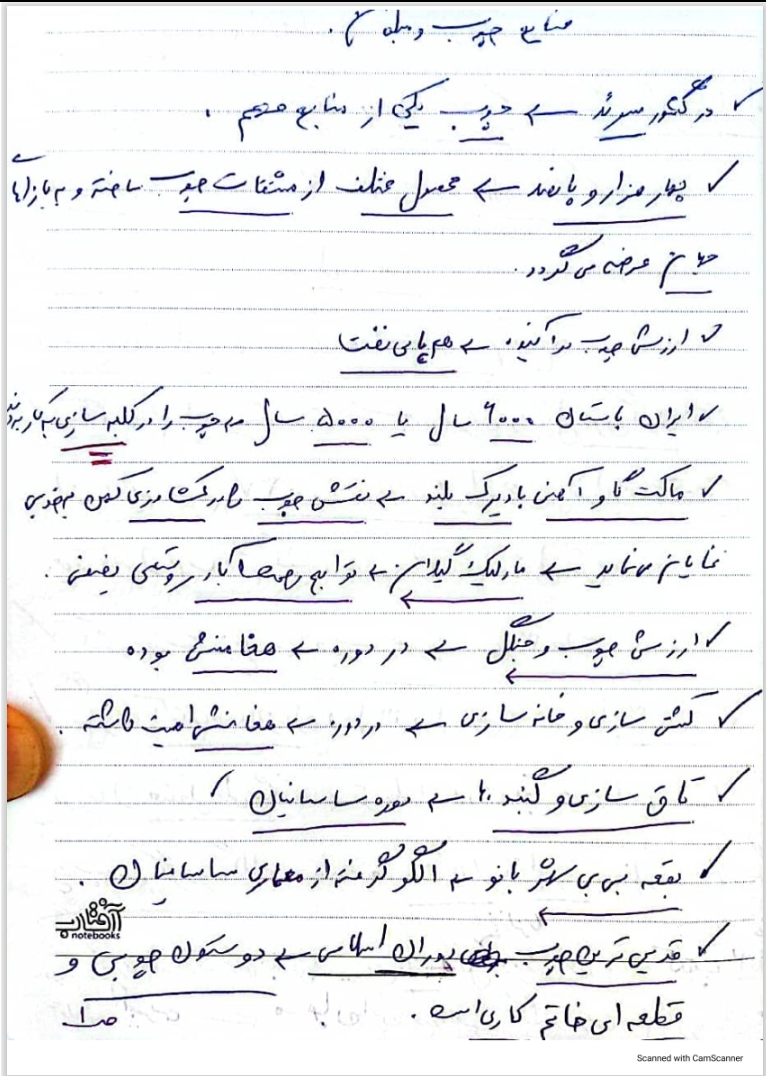 منابع چوب و مبلمان.
✓ در کشور سوئد ← چوب یکی از منابع مهم.
✓ چهار هزار و پانصد ← محصول مختلف از مشتقات چوب ساخته و به بازارهای
جهان عرضه می گردد.
✓ ارزش چوب در آینده ← هم پای نفت
✓ ایران باستان ۶۰۰۰ سال یا ۵۰۰۰ سال ← چوب را در کلبه سازی به کار بردند
✓ ماکت گاو آهنی با دیرک بلند ← نقش چوب در کشاورزی کهن به خوبی
نمایان می نماید ← مارلیک گیلان ← توابع رحمت آباد روستای
✓ ارزش چوب و جنگل ← در دوره ← هخامنشی بوده
✓ کشتی سازی و خانه سازی ← در دوره ← هخامنشی اهمیت داشته.
✓ تاق سازی و گنبد ← دوره ساسانیان
✓ بقعه بی بی شهربانو ← الگو گرفته از معماری ساسانیان.
آفتاب
notebooks
✓ قدیمی ترین چوب دوران اسلامی ← دو ستون چوبی و
قطعه ای خاتم کاری است. ص۱
Scanned with CamScanner